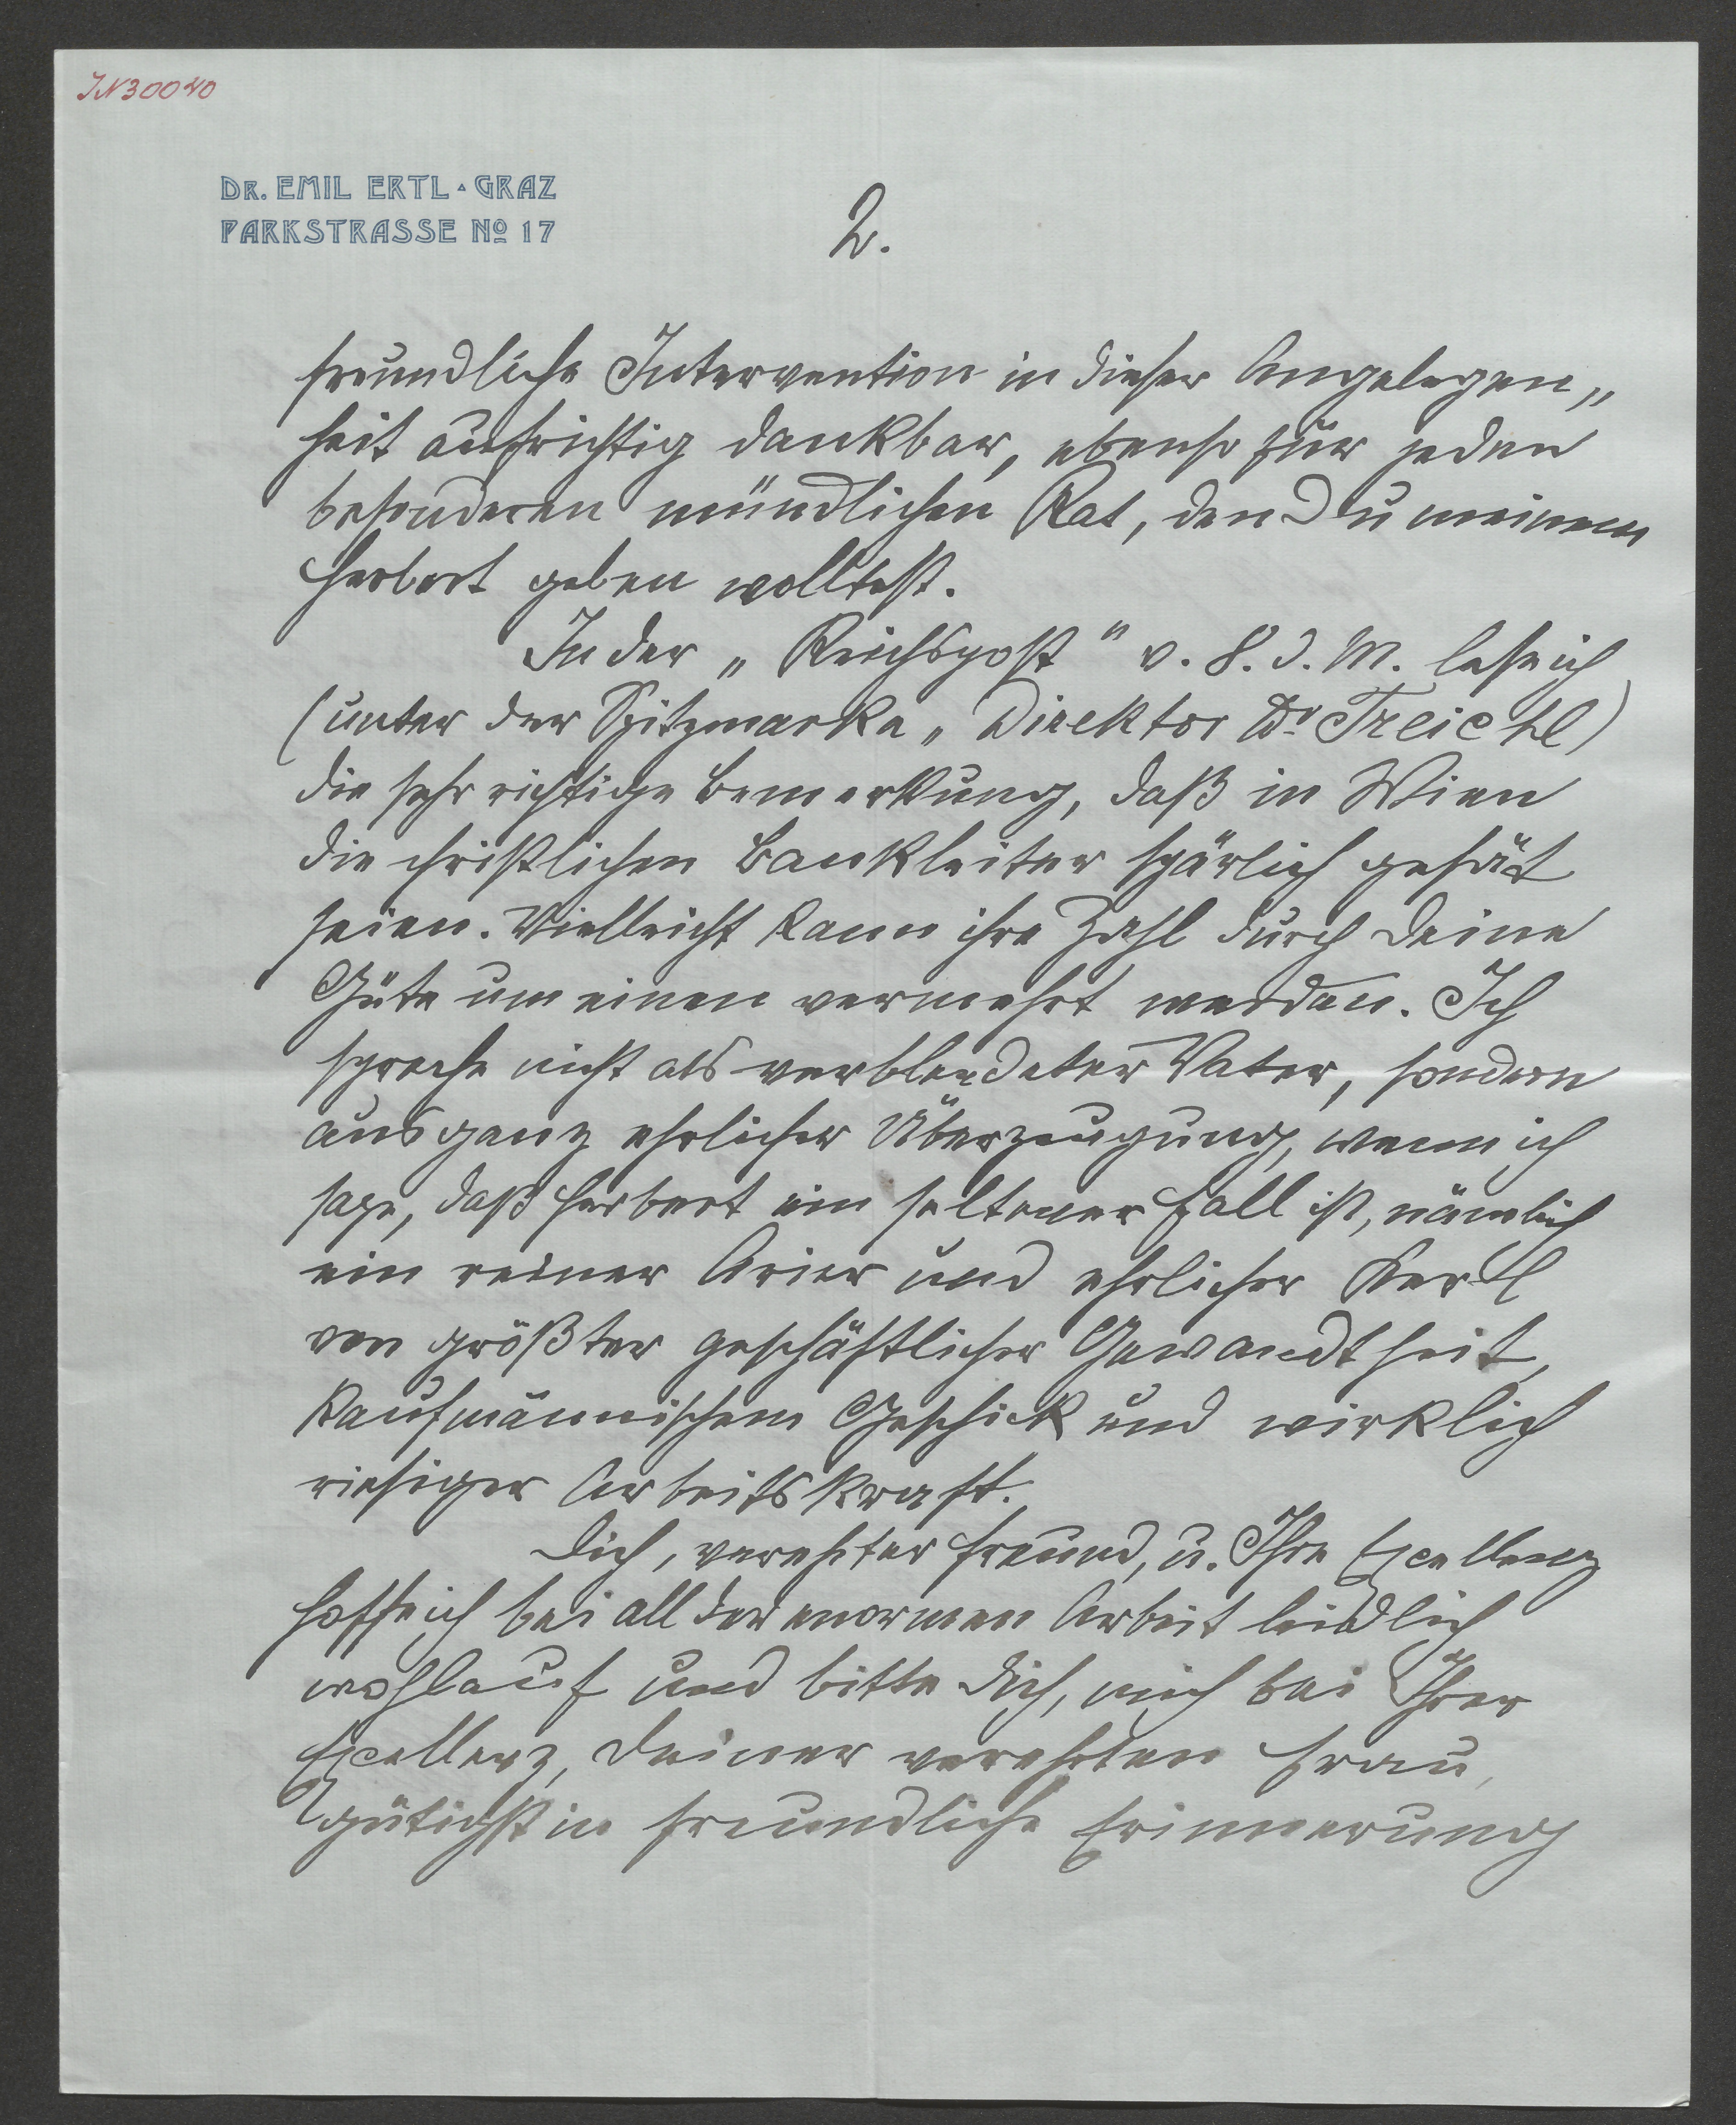 IN 30040
DR. EMIL ERTL · GRAZ
PARKSTRASSE No 17
2.
freundliche Intervention in dieser Angelegen„
heit aufrichtig dankbar, ebenso für jeden
besonderen mündlichen Rat, den Du meinem
Herbert geben wolltest.
In der „Reichspost" v. 8. d. M. lese ich
(unter der Spitzmarke „Direktor Dr Treichl)
die sehr richtige Bemerkung, daß in Wien
die christlichen Bankleiter spärlich gesät
seien. Vielleicht kann ihre Zahl durch Deine
Güte um einen vermehrt werden. Ich
spreche nicht als verblendeter Vater, sondern
aus ganz ehrlicher Überzeugung, wenn ich
sage, daß Herbert ein seltener Fall ist, nämlich
ein reiner Arier und ehrlicher Kerl
von größter geschäftlicher Gewandtheit,
kaufmännischem Geschick und wirklich
riesiger Arbeitskraft.
Dich, verehrter Freund, u. Ihre Excellenz
hoffe ich bei all der enormen Arbeit leidlich
wohlauf und bitte Dich, mich bei Ihrer
Excellenz, Deiner verehrten Frau,
gütigst in freundliche Erinnerung